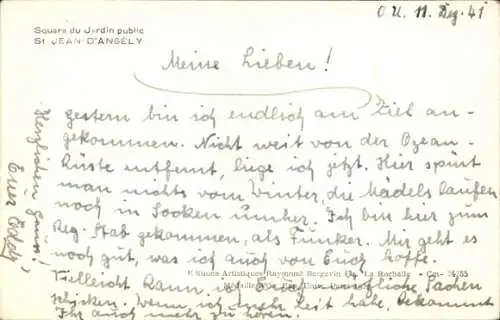 Square du Jardin public
St JEAN D'ANGÉLY
O.U. 11. Dez. 41
Meine Lieben!
gestern bin ich endlich am Ziel an-
gekommen. Nicht weit von der Ozean-
küste entfernt, liege ich jetzt. Hier spürt
man nichts vom Winter, die Mädels laufen
noch in Socken umher. Ich bin hier zum
Reg. Stab gekommen, als Funker. Mir geht es
noch gut, was ich auch von Euch hoffe.
Artistiques Raymond Bergevin "La Rochelle"
Vielleicht kann ich Euch Sachen
schicken. Wenn ich mehr Zeit habe, bekommt
Ihr auch mehr zu hören.
Herzlichen Gruss!
Euer